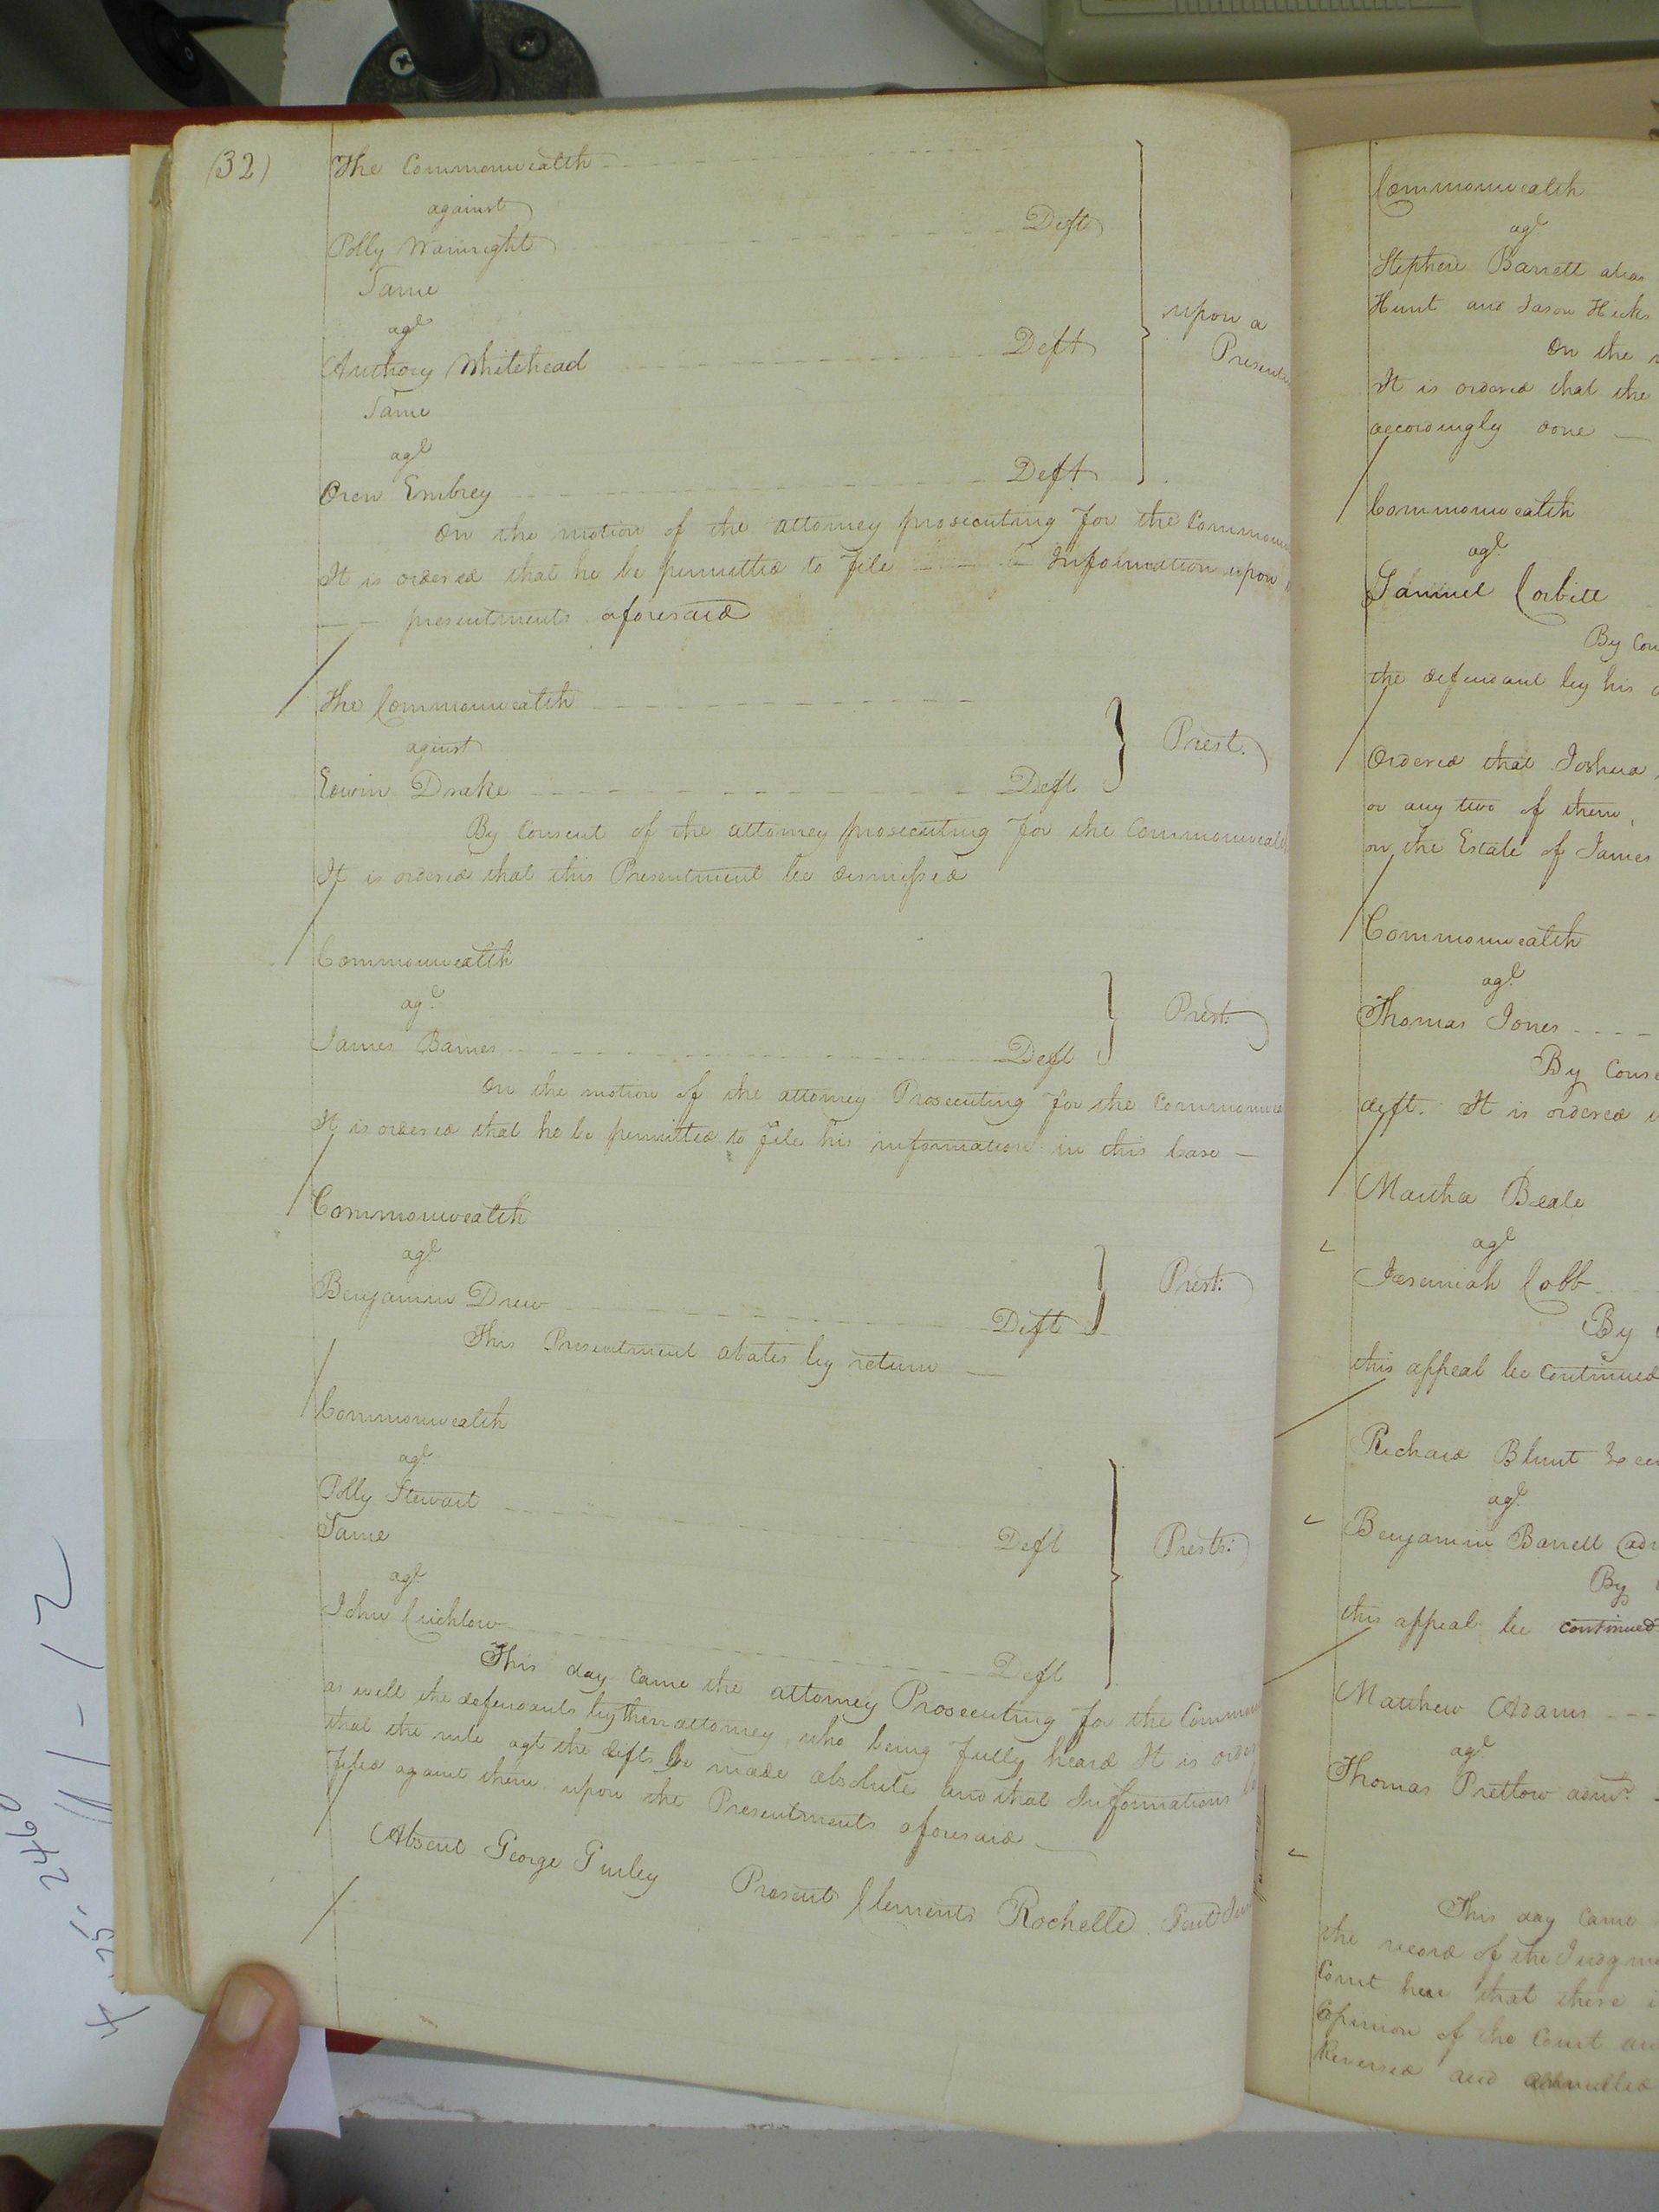 (32)
The Commonwealth
against
Polly Wainright Deft
Same
agt
Anthony Whitehead Deft
Same
agt
Oren Embrey Deft
upon a
Presentm
On the motion of the attorney prosecuting for the Commonw
It is ordered that he be permitted to file Information upon
presentments aforesaid
The Commonwealth
against
Edwin Drake Deft
Prest.
By Consent of the attorney prosecuting for the Commonwealth
It is ordered that this Presentment be dismissed
Commonwealth
agt
James Barnes Deft
Prest:
On the motion of the attorney Prosecuting for the Commonwea
It is ordered that he be permitted to file his information in this Case
Commonwealth
agt
Benjamin Drew Deft
Prest:
This Presentment abates by return
Commonwealth
agt
Polly Stewart Deft
Same
agt
John Crichlow Deft
Prests:
This day came the attorney Prosecuting for the Common
as well the defendants by their attorney, who being fully heard It is order
that the rule agt the defts be made absolute and that Informations be
filed against them upon the Presentments aforesaid
Absent George Gurley Present Clements Rochelle Gent
Commonwealth
agt
Stephen Barrett alias
Hunt and Jason Hicks
On the
It is ordered that the
accordingly done
Commonwealth
agt
Samuel Corbitt
By Con
the defendant by his
Ordered that Joshua
or any two of them,
on the Estate of James
Commonwealth
agt
Thomas Jones
By Cons
deft. It is ordered
Martha Beale
agt
Jeremiah Cobb
By
this appeal be continued
Richard Blunt
agt
Benjamin Barrett adm
By
this appeal be continued
Matthew Adams
agt
Thomas Pretlow admr
This day came
the record of the Judgme
Court here that there
Opinion of the Court
Reversed and annulled
4 25 2460
11-12